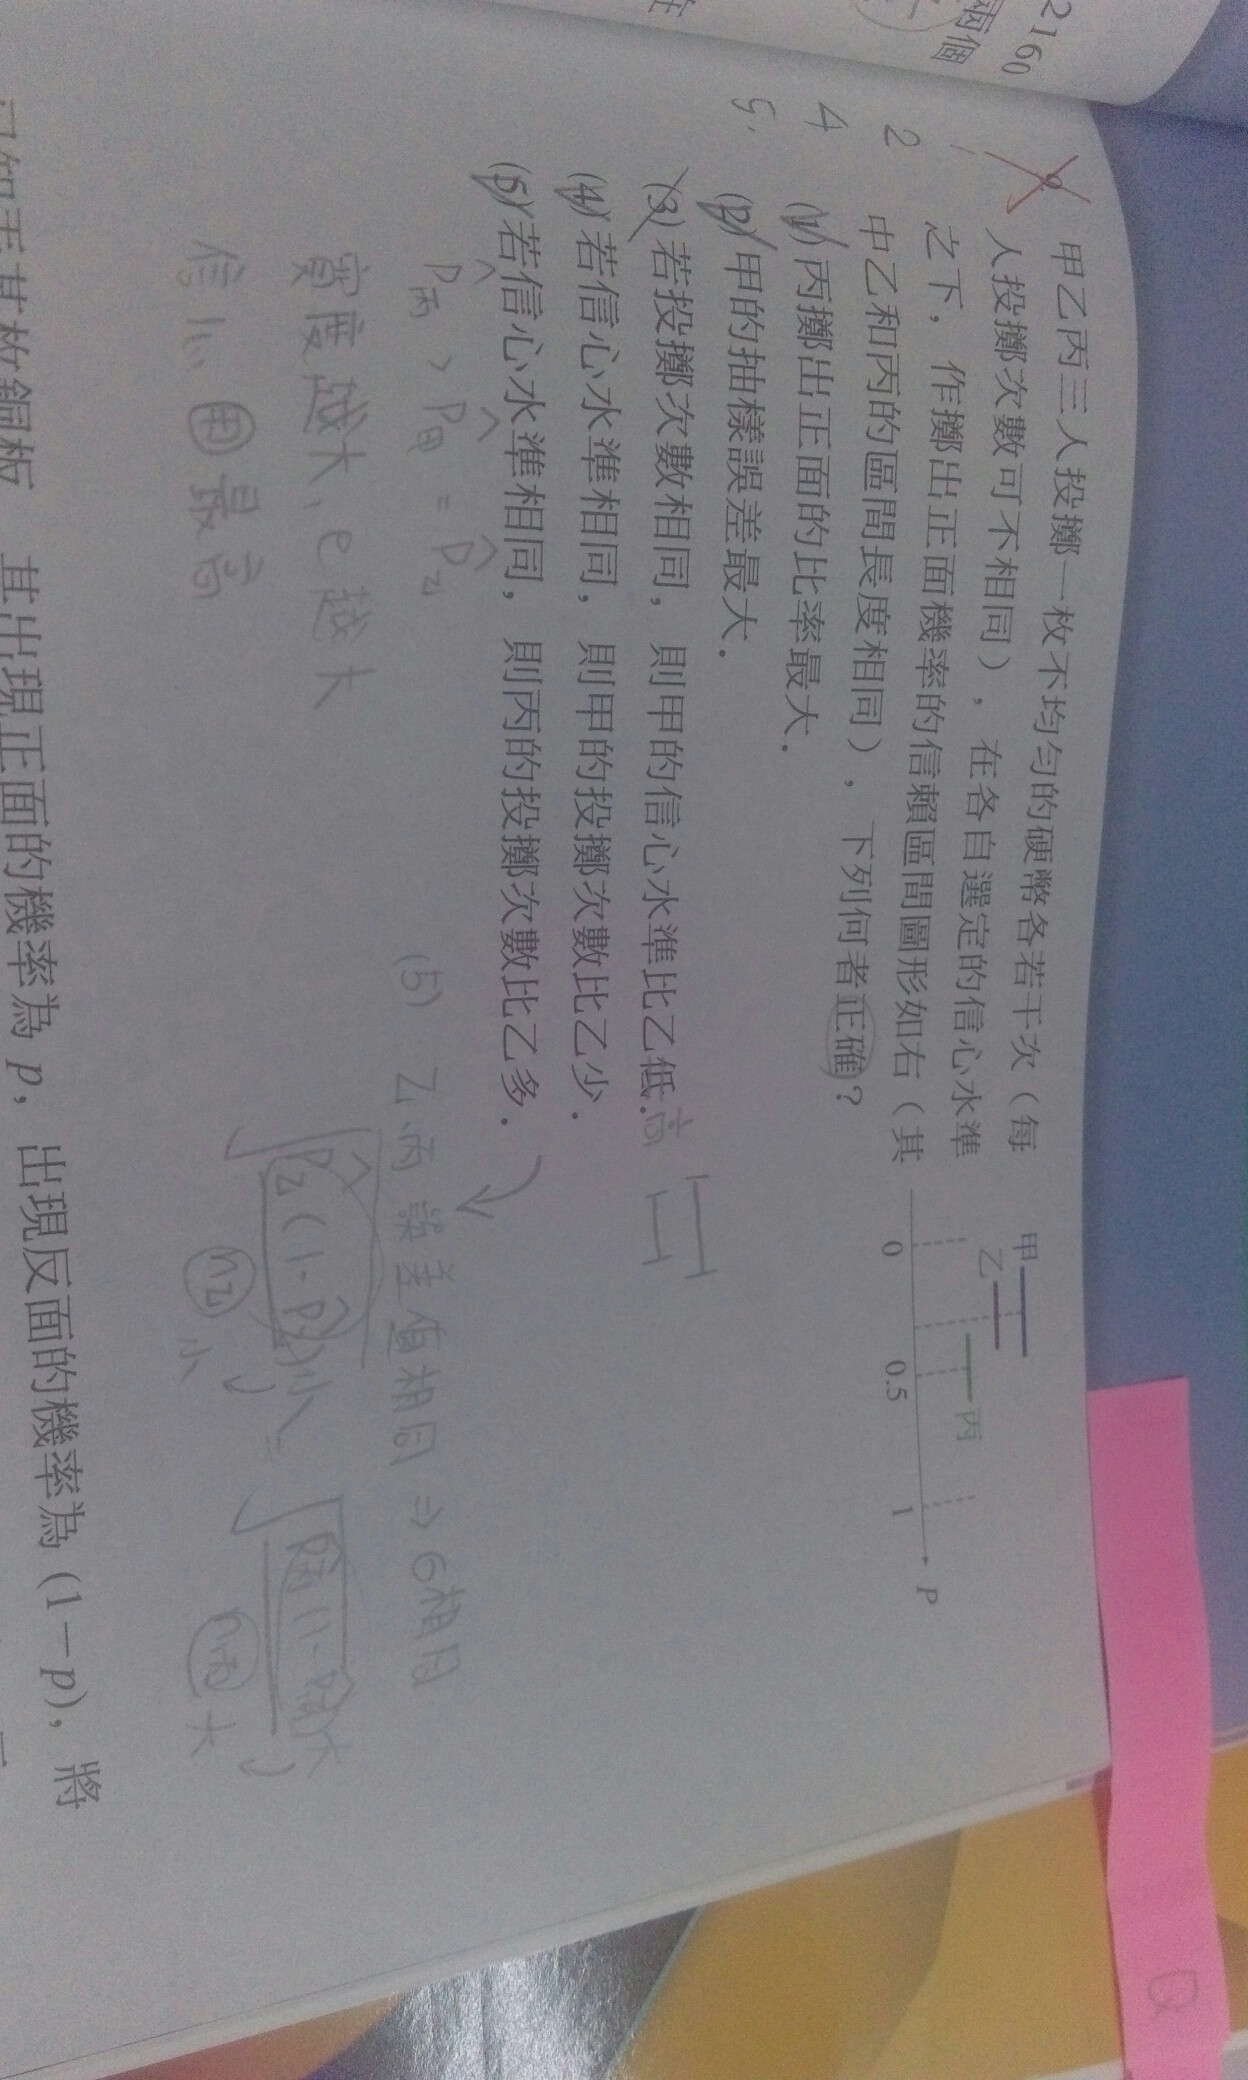 2160
兩個
甲乙丙三人投擲一枚不均勻的硬幣各若干次（每
人投擲次數可不相同），在各自選定的信心水準
之下，作擲出正面機率的信賴區間圖形如右（其
中乙和丙的區間長度相同），下列何者正確？
甲
乙
丙
0 0.5 1 P
2
4
5.
(1) 丙擲出正面的比率最大．
(2) 甲的抽樣誤差最大．
(3) 若投擲次數相同，則甲的信心水準比乙低．高
(4) 若信心水準相同，則甲的投擲次數比乙少．
(5) 若信心水準相同，則丙的投擲次數比乙多．
P̂丙 > P̂甲 = P̂乙
寬度越大，e越大
信心 甲最高
(5) 乙、丙 誤差值相同 ⇒ σ相同
√P̂乙(1-P̂乙)小
n乙 小
√P̂丙(1-P̂丙)大
n丙 大
其出現正面的機率為 p，出現反面的機率為 (1－p)，將
Q